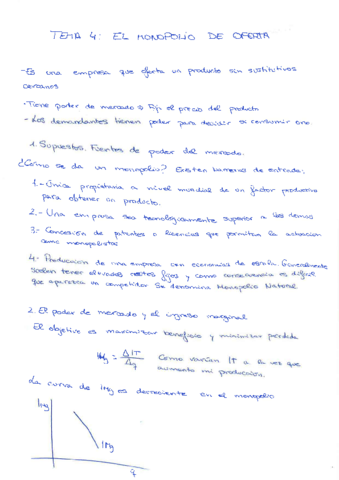 TEMA 4: EL MONOPOLIO DE OFERTA
-Es una empresa que oferta un producto sin sustitutivos
cercanos
-Tiene poder de mercado → Fija el precio del producto
-Los demandantes tienen poder para decidir si consumir o no.
1. Supuestos. Fuentes de poder del mercado.
¿Cómo se da un monopolio? Existen barreras de entrada:
1.- Único propietario a nivel mundial de un factor productivo
para obtener un producto.
2.- Una empresa sea tecnológicamente superior a las demás
3.- Concesión de patentes o licencias que permitan la actuación
como monopolistas
4.- Producción de una empresa con economías de escala. Generalmente
suelen tener elevados costes fijos y como consecuencia es difícil
que aparezca un competidor. Se denomina Monopolio Natural
2. El poder de mercado y el ingreso marginal
El objetivo es maximizar beneficio y minimizar pérdida
IMg = ΔIT / Δq Como varían IT a la vez que
aumento mi producción.
La curva de IMg es decreciente en el monopolio
IMg
IMg
q